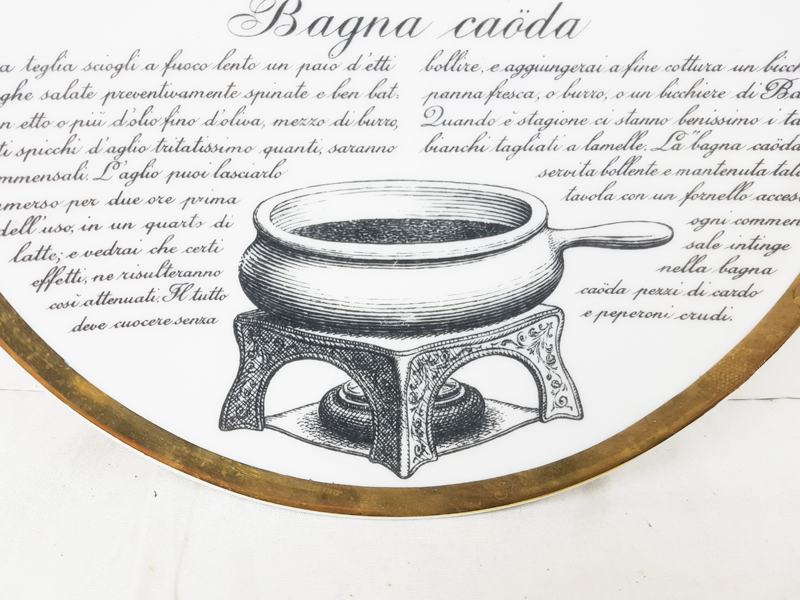 Bagna caöda
a teglia sciogli a fuoco lento un paio d'etti
ghe salate preventivamente spinate e ben bat:
n etto o più d'olio fino d'oliva, mezzo di burro,
ti spicchi d'aglio tritatissimo quanti, saranno
mmensali. L'aglio puoi lasciarlo
mmerso per due ore prima
dell'uso, in un quarto di
latte; e vedrai che certi
effetti, ne risulteranno
così attenuati. Il tutto
deve cuocere senza
bollire, e aggiungerai a fine cottura un bicch
panna fresca, o burro, o un bicchiere di Ba
Quando è stagione ci stanno benissimo i ta
bianchi tagliati a lamelle. La "bagna caöda
servita bollente e mantenuta tale
tavola con un fornello acces
ogni commen
sale intinge
nella bagna
caöda pezzi di cardo
e peperoni crudi.